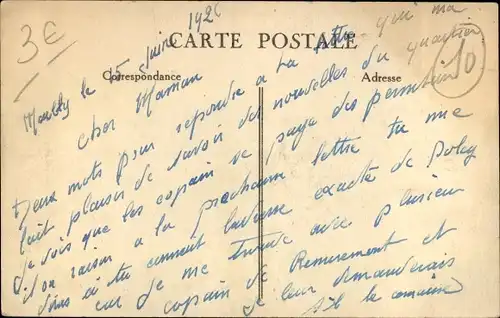 3€
CARTE POSTALE
Correspondance
Adresse
10
le 15 Juin 192
Cher Maman
Deux mots pour repondre a ta lettre qui ma
fait plaisir de savoir des nouvelles du quartier
Je vois que les copain se paye des permission
il on raison a la prochaine lettre tu me
diras où tu conment l'adresse exacte de
car je me trouve avec plusieur
copain de Remuremont et
je leur demanderais
s'il le connaisse